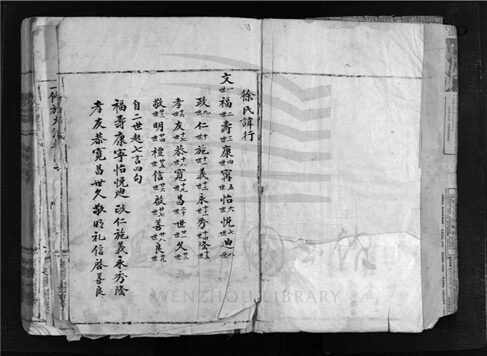 徐氏諱行
文一世福二世壽三世康四世寧五世怡六世悅七世迪八世
政九世仁十世施十一世義十二世永十三世秀十四世隆十五世
孝十六世友十七世恭十八世寬十九世昌二十世世廿一世久廿二世
敬廿三世明廿四世禮廿五世信廿六世啟廿七世善廿八世良廿九世
自二世起七言四句
福壽康寧怡悅迪 政仁施義永秀隆
孝友恭寬昌世久 敬明礼信啓善良
WENZHOU LIBRARY